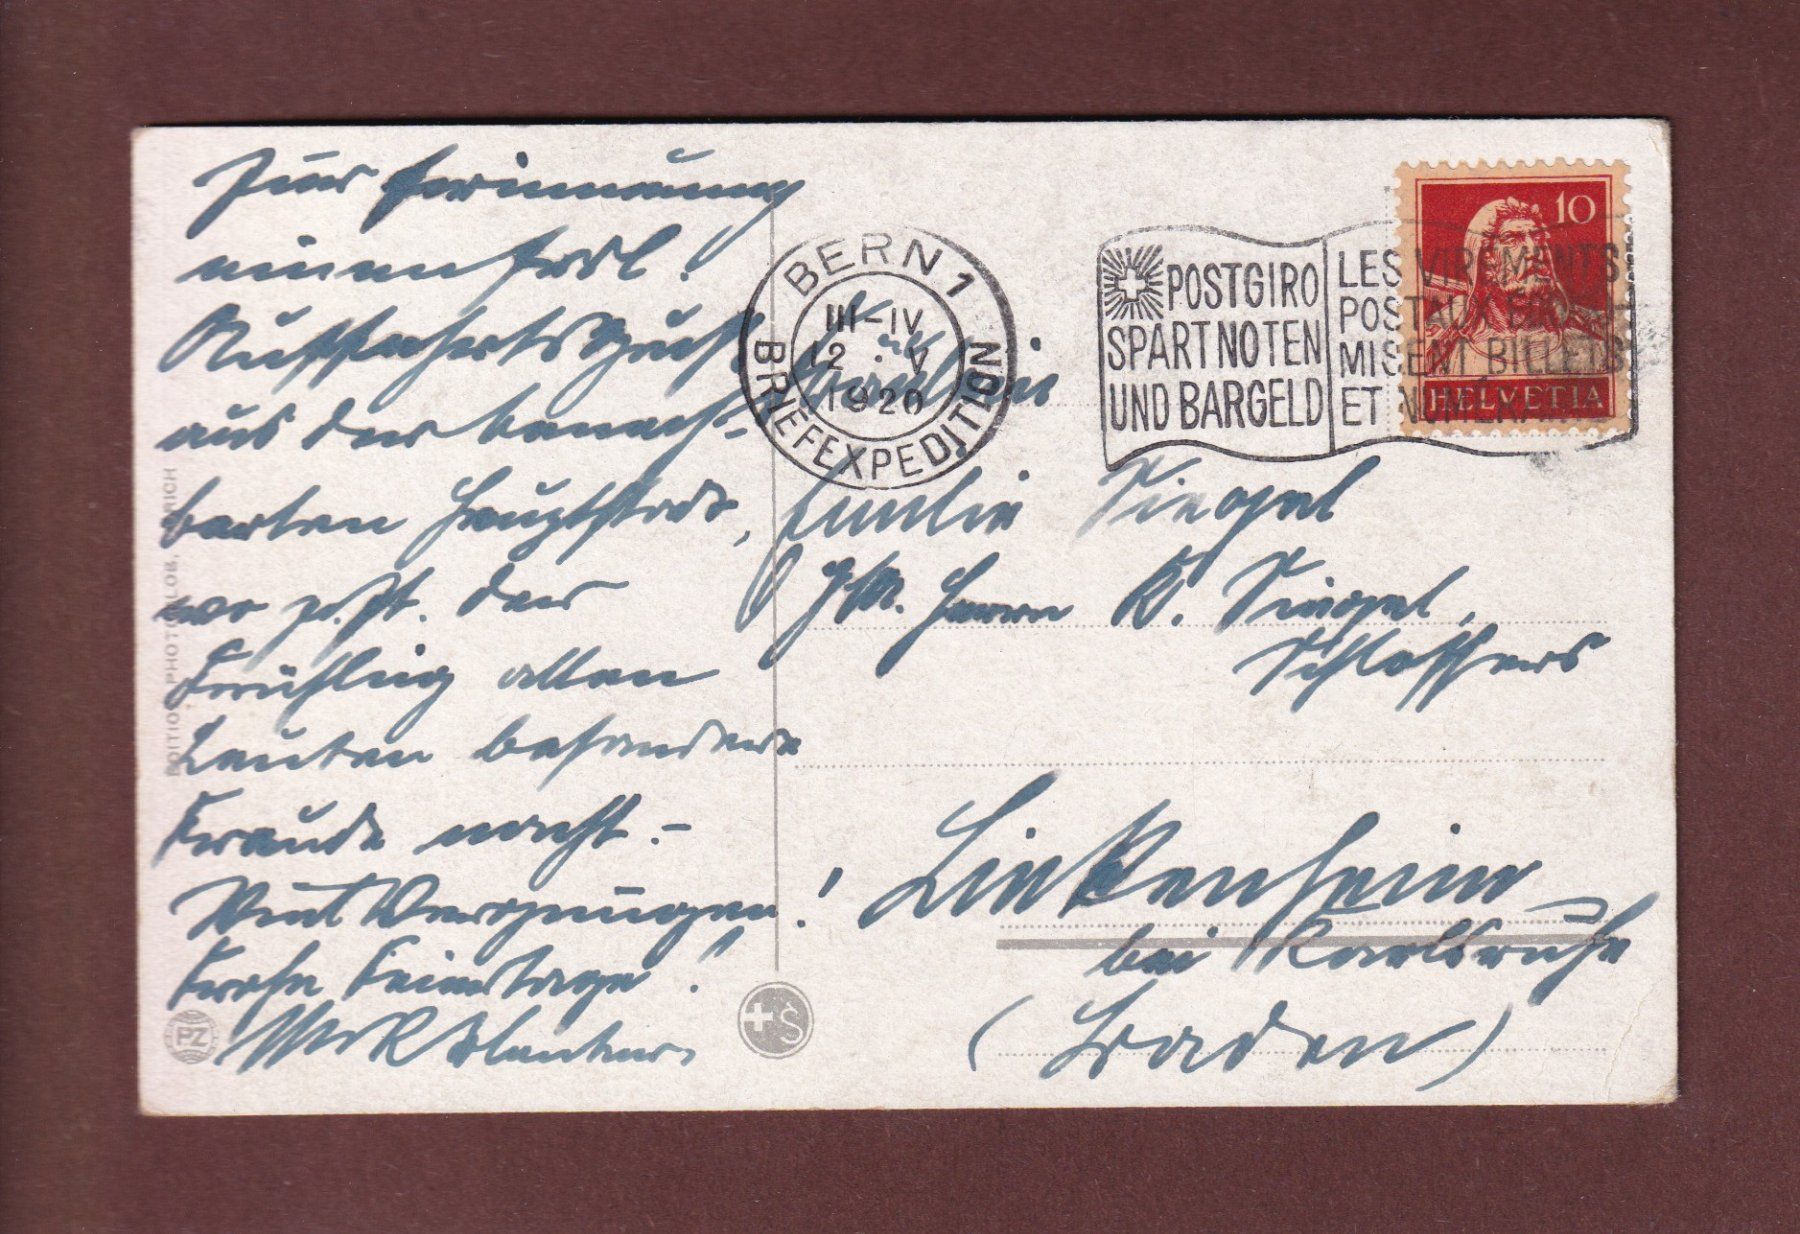 Zur Erinnerung
einen frdl.
Auffahrtsgruß
aus der benach-
barten Hauptstadt,
wo z. Zt. der
Frühling allen
Leuten besondere
Freude macht.-
Viel Vergnügen!
Frohe Feiertage!
BERN 1
III-IV
12 . V
1920
BRIEFEXPEDITION
POSTGIRO
SPART NOTEN
UND BARGELD
LES VIREMENTS
POSTAUX
MISENT BILLETS
ET NUMÉRAIRE
10
HELVETIA
Fräulein
Emilie Siegel
Herrn K. Siegel,
Schlossers
Linkenheim
bei Karlsruhe
(Baden)
EDITION PHOTOGLOB, ZÜRICH
PZ
+ S